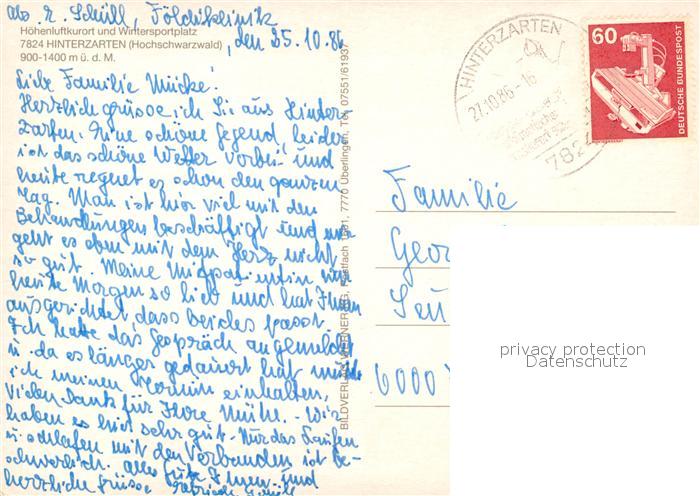 Abs. E. Schüll, Földiklinik
Höhenluftkurort und Wintersportplatz
7824 HINTERZARTEN (Hochschwarzwald)
900-1400 m ü. d. M.
, den 25.10.86
Liebe Familie Mücke!
Herzlich grüsse ich Sie aus Hinter-
zarten. Eine schöne Gegend, leider
ist das schöne Wetter vorbei und
heute regnet es schon den ganzen
Tag. Man ist hier viel mit den
Behandlungen beschäftigt und mir
geht es eben mit dem Herz nicht
so gut. Meine Mitpatientin war
heute Morgen so lieb und hat Ihnen
ausgerichtet dass beides passt.
Ich hatte das Gespräch angemeldet
u. da es länger gedauert hat musste
ich meinen Termin einhalten.
Vielen Dank für Ihre Mühe. - Wir
haben es hier sehr gut - Nur das Laufen
u. schlafen mit den Verbanden ist be-
schwerlich. Alles Gute Ihnen und
herzliche Grüsse
BILDVERLAG WERNER Postfach 1981, 7770 Überlingen, Tel. 07551/61937
HINTERZARTEN
27.10.86-16
7824
60
DEUTSCHE BUNDESPOST
Familie
Geor
6000
privacy protection
Datenschutz